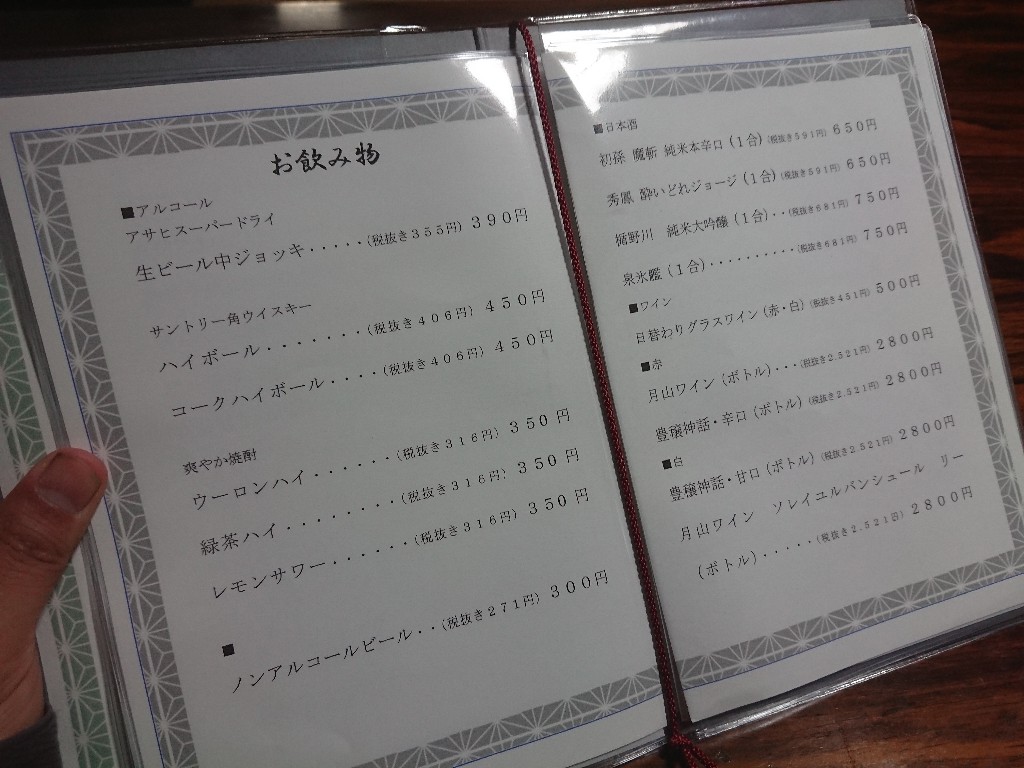 お飲み物
■アルコール
アサヒスーパードライ
生ビール中ジョッキ・・・・・(税抜き355円) 390円
サントリー角ウイスキー
ハイボール・・・・・・・(税抜き406円) 450円
コークハイボール・・・・(税抜き406円) 450円
爽やか焼酎
ウーロンハイ・・・・・・(税抜き316円) 350円
緑茶ハイ・・・・・・・・(税抜き316円) 350円
レモンサワー・・・・・・(税抜き316円) 350円
■
ノンアルコールビール・・(税抜き271円) 300円
■日本酒
初孫 魔斬 純米本辛口(1合)(税抜き591円) 650円
秀鳳 酔いどれジョージ(1合)(税抜き591円) 650円
楯野川 純米大吟醸(1合)・・(税抜き681円) 750円
泉氷鑑(1合)・・・・・・・・・・(税抜き681円) 750円
■ワイン
日替わりグラスワイン(赤・白)(税抜き451円) 500円
■赤
月山ワイン(ボトル)・・・(税抜き2,521円) 2800円
豊穣神話・辛口(ボトル)(税抜き2,521円) 2800円
■白
豊穣神話・甘口(ボトル)(税抜き2,521円) 2800円
月山ワイン ソレイユルバンシュール リー
(ボトル)・・・・・(税抜き2,521円) 2800円